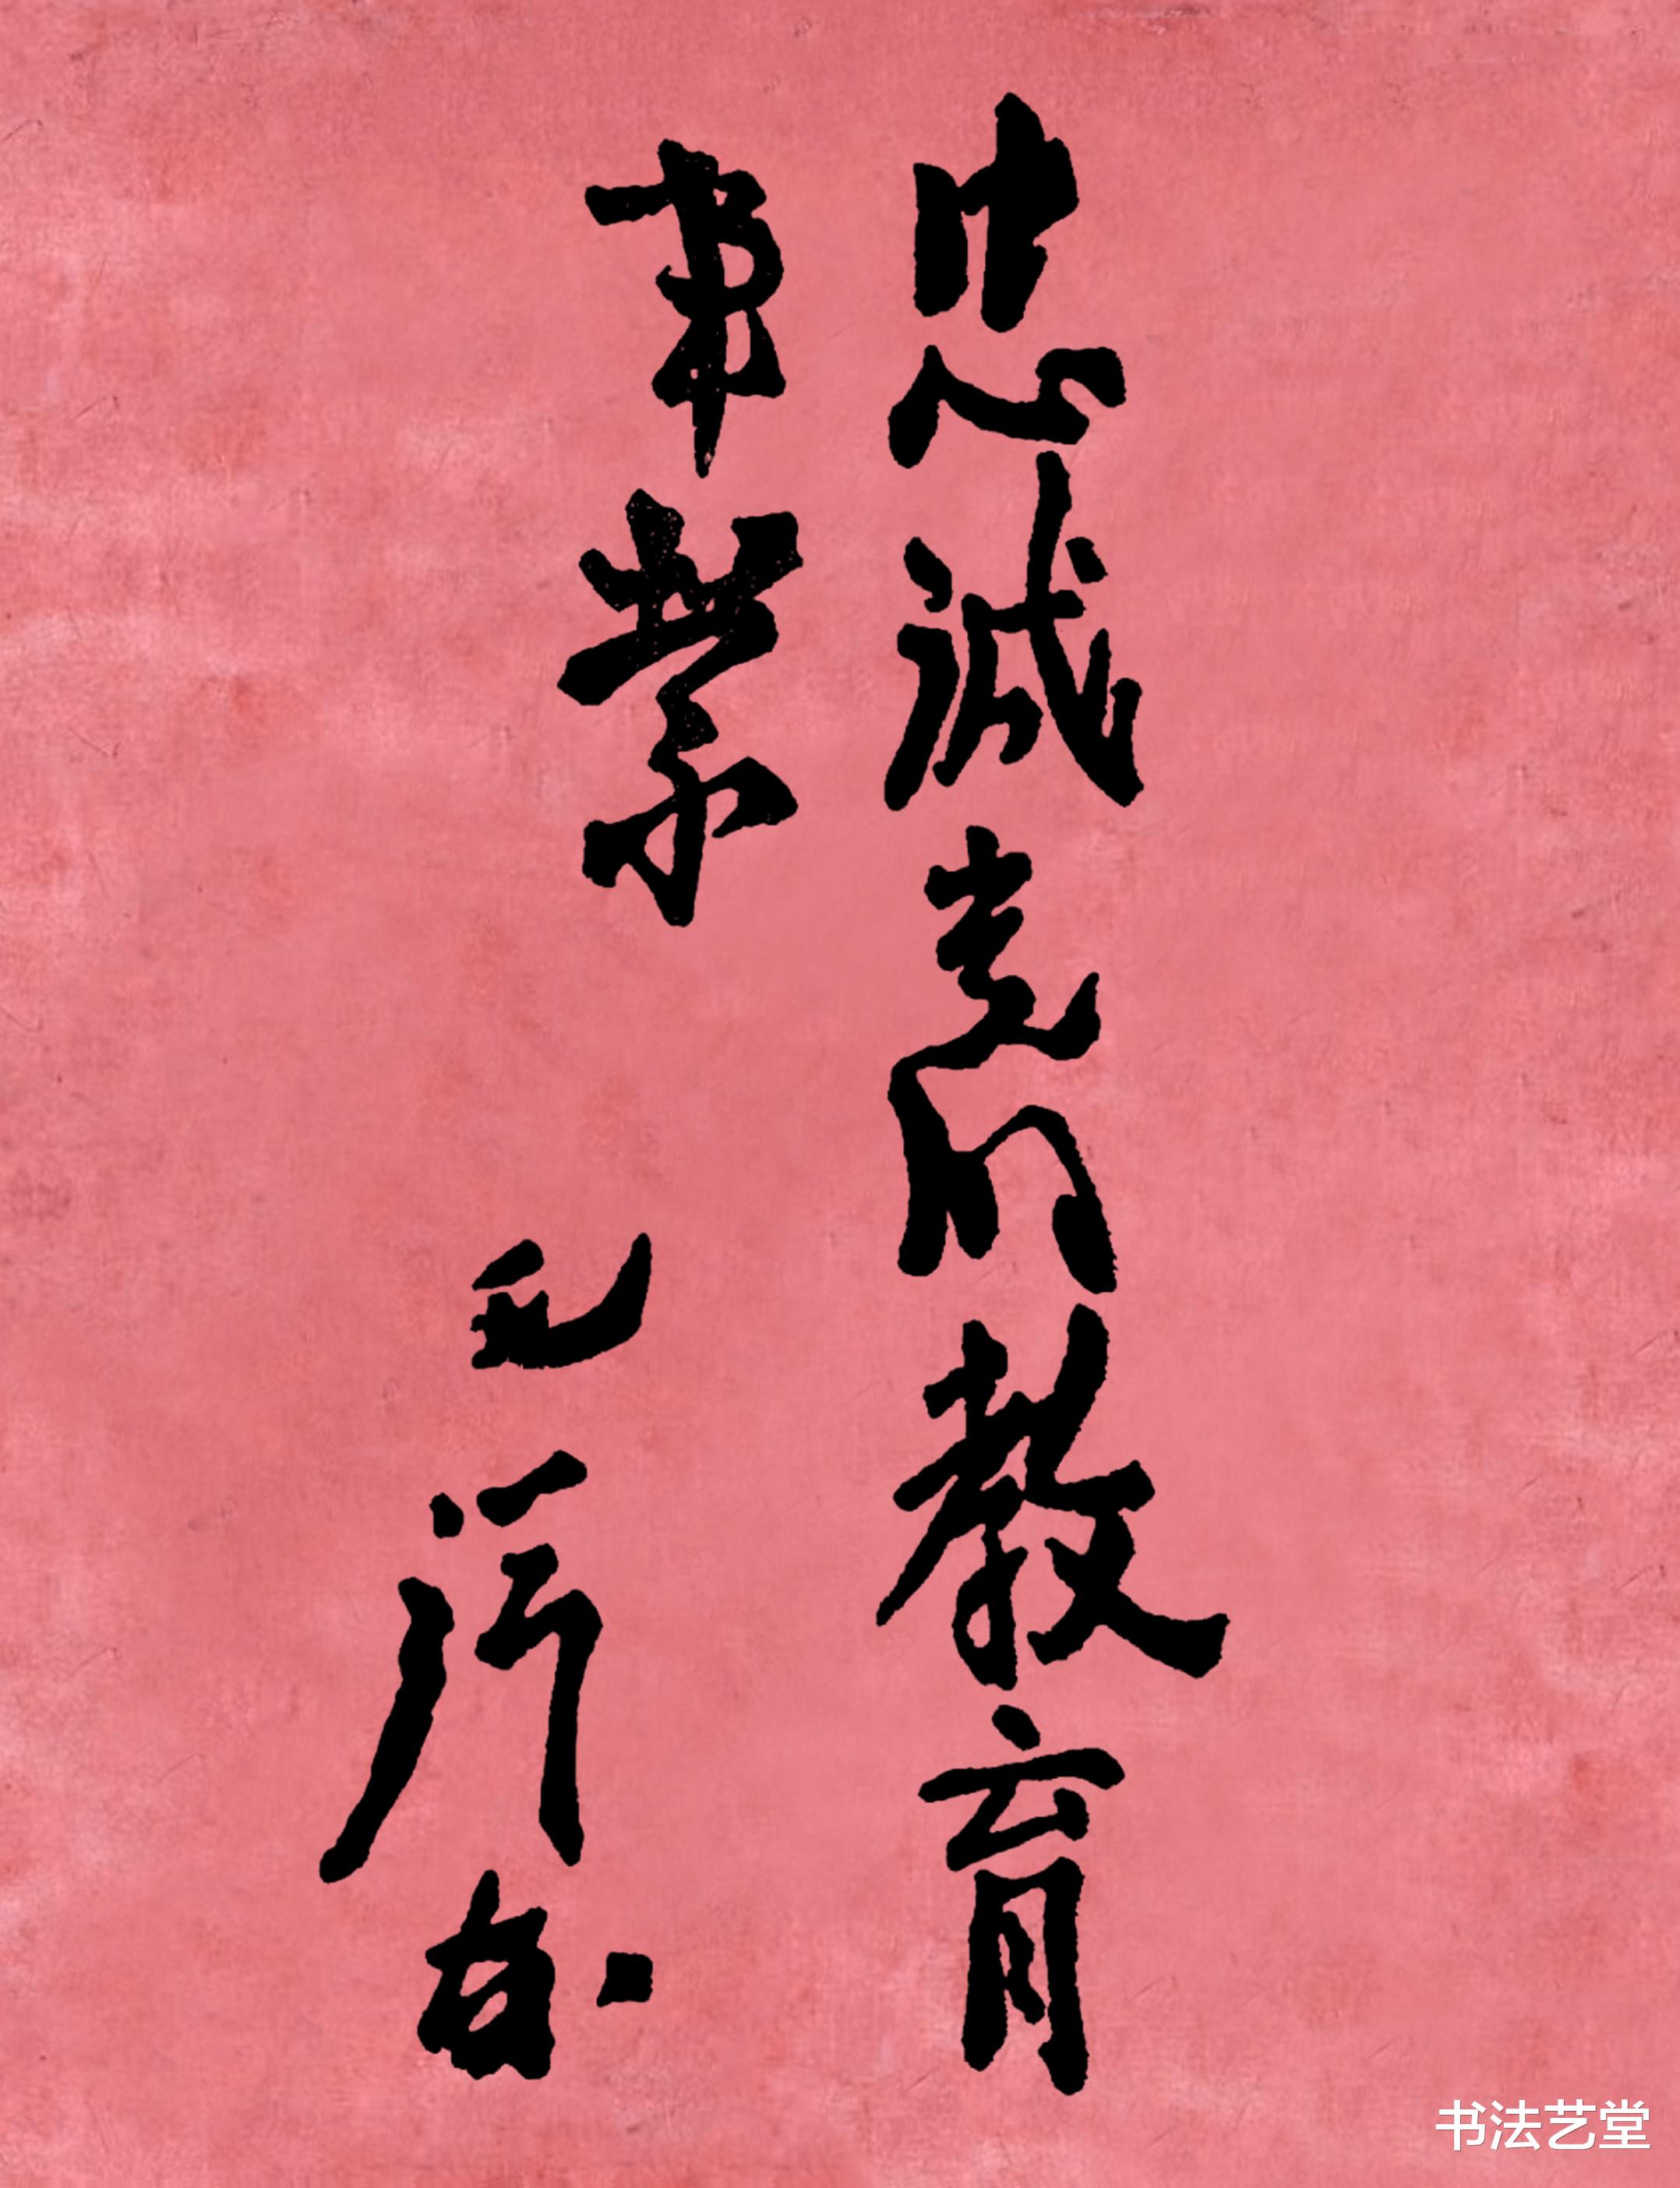 忠诚党的教育
事業
毛泽东
书法艺堂